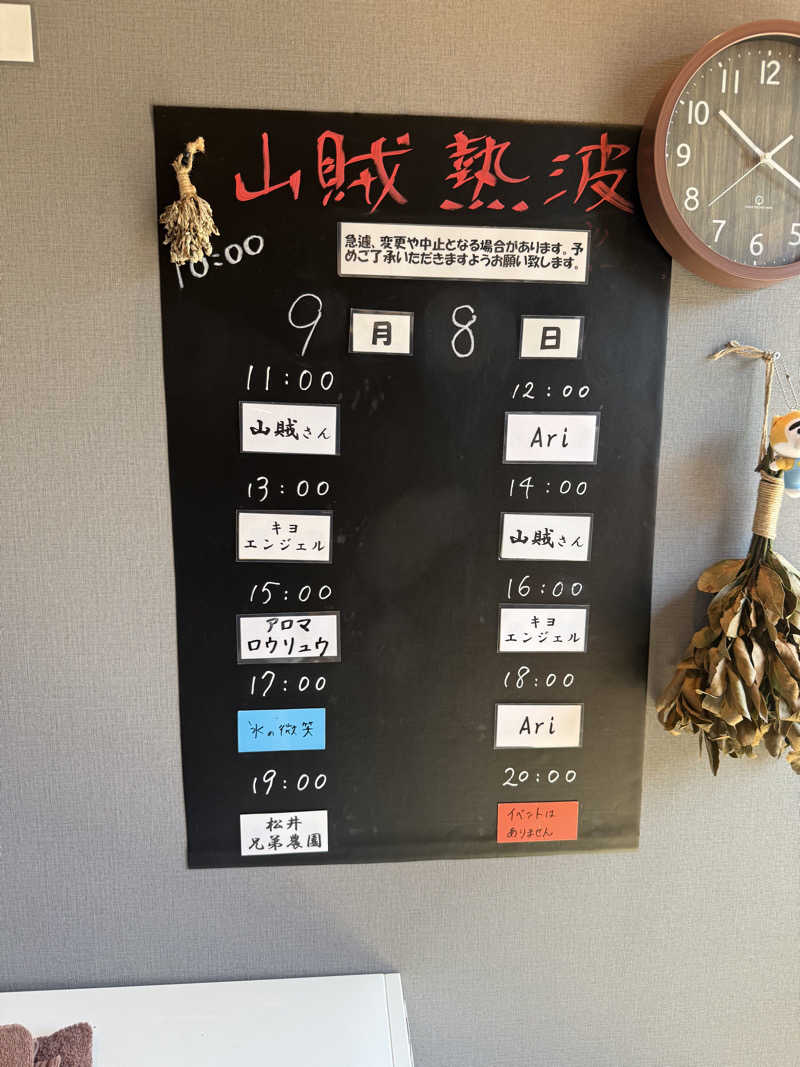 山賊 熱波
10:00
急遽、変更や中止となる場合があります。予
めご了承いただきますようお願い致します。
9 月 8 日
11:00
山賊さん
12:00
Ari
13:00
キヨ
エンジェル
14:00
山賊さん
15:00
アロマ
ロウリュウ
16:00
キヨ
エンジェル
17:00
氷の微笑
18:00
Ari
19:00
松井
兄弟農園
20:00
イベントは
ありません
10 11 12
9
8
7 6 5